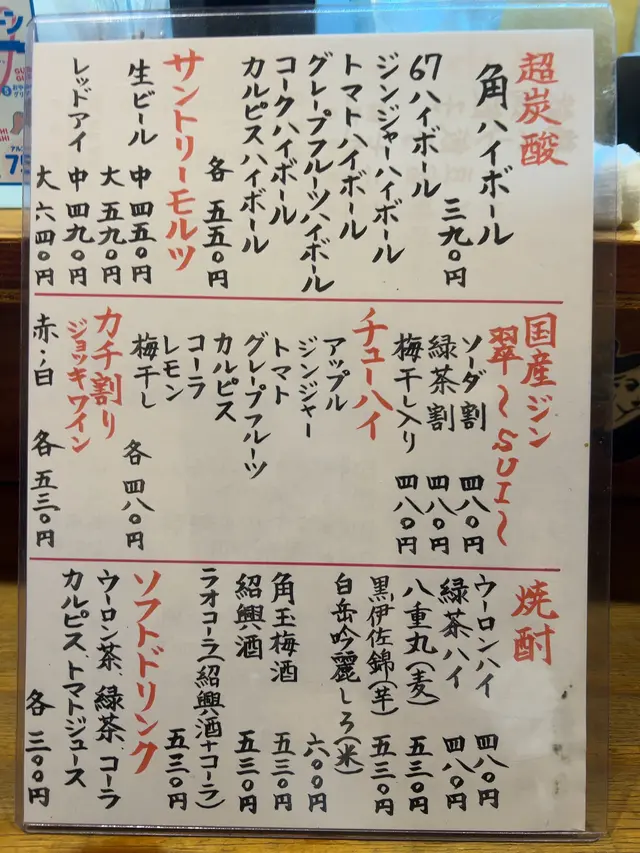 超炭酸
角ハイボール 三九〇円
67ハイボール
ジンジャーハイボール
トマトハイボール
グレープフルーツハイボール
コークハイボール
カルピスハイボール
各 五五〇円
サントリーモルツ
生ビール 中 四五〇円
大 五九〇円
レッドアイ 中 四九〇円
大 六四〇円
国産ジン
翠〜SUI〜
ソーダ割 四八〇円
緑茶割 四八〇円
梅干し入り 四八〇円
チューハイ
アップル
ジンジャー
トマト
グレープフルーツ
カルピス
コーラ
レモン
梅干し
各 四八〇円
カチ割り
ジョッキワイン
赤・白 各 五三〇円
焼酎
ウーロンハイ 四八〇円
緑茶ハイ 四八〇円
八重丸(麦) 五三〇円
黒伊佐錦(芋) 五三〇円
白岳吟麗しろ(米) 六〇〇円
角玉梅酒 五三〇円
紹興酒 五三〇円
ラオコーラ(紹興酒+コーラ) 五三〇円
ソフトドリンク
ウーロン茶、緑茶、コーラ
カルピス、トマトジュース
各 三〇〇円